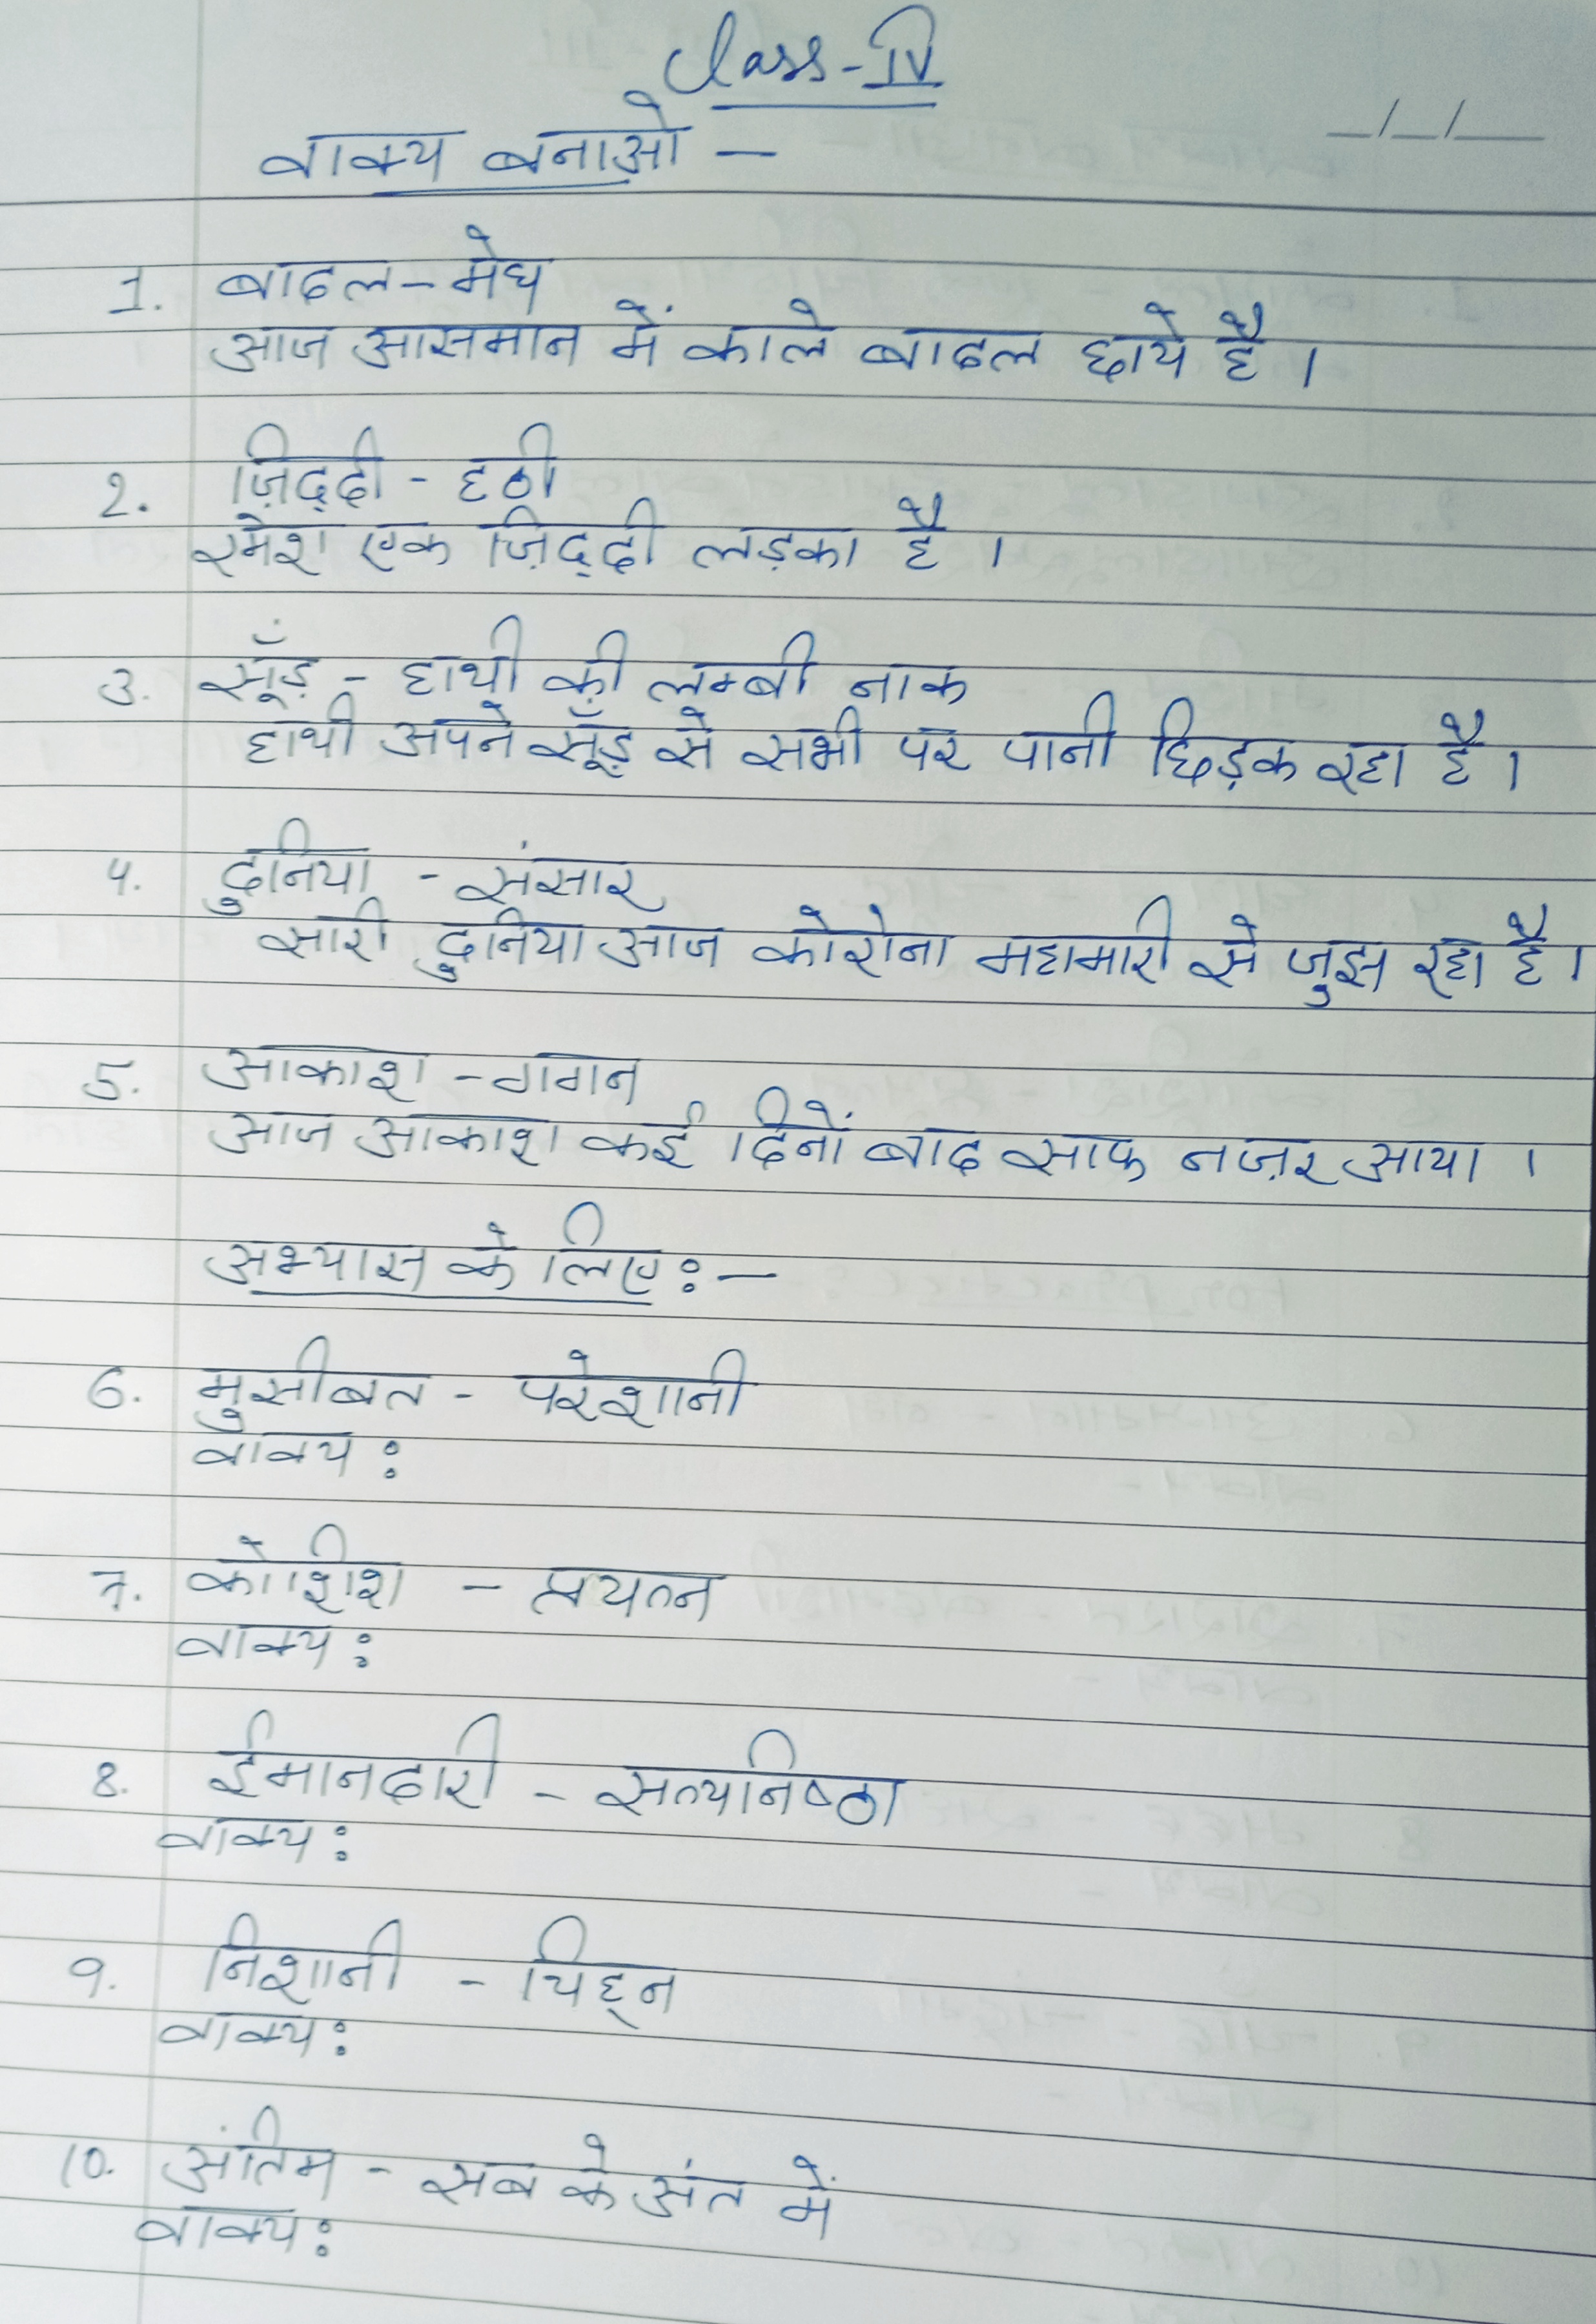 Class-IV
_/_/__
वाक्य बनाओ —
1. बादल-मेघ
आज आसमान में काले बादल छाये है ।
2. ज़िद्दी - हठी
रमेश एक ज़िद्दी लड़का है ।
3. सूँड़ - हाथी की लम्बी नाक
हाथी अपने सूँड़ से सभी पर पानी छिड़क रहा है ।
4. दुनिया - संसार
सारी दुनिया आज कोरोना महामारी से जुझ रहा है ।
5. आकाश - गगन
आज आकाश कई दिनों बाद साफ नज़र आया ।
अभ्यास के लिए :-
6. मुसीबत - परेशानी
वाक्य :
7. कोशिश - प्रयत्न
वाक्य :
8. ईमानदारी - सत्यनिष्ठा
वाक्य :
9. निशानी - चिह्न
वाक्य :
10. अंतिम - सब के अंत में
वाक्य :